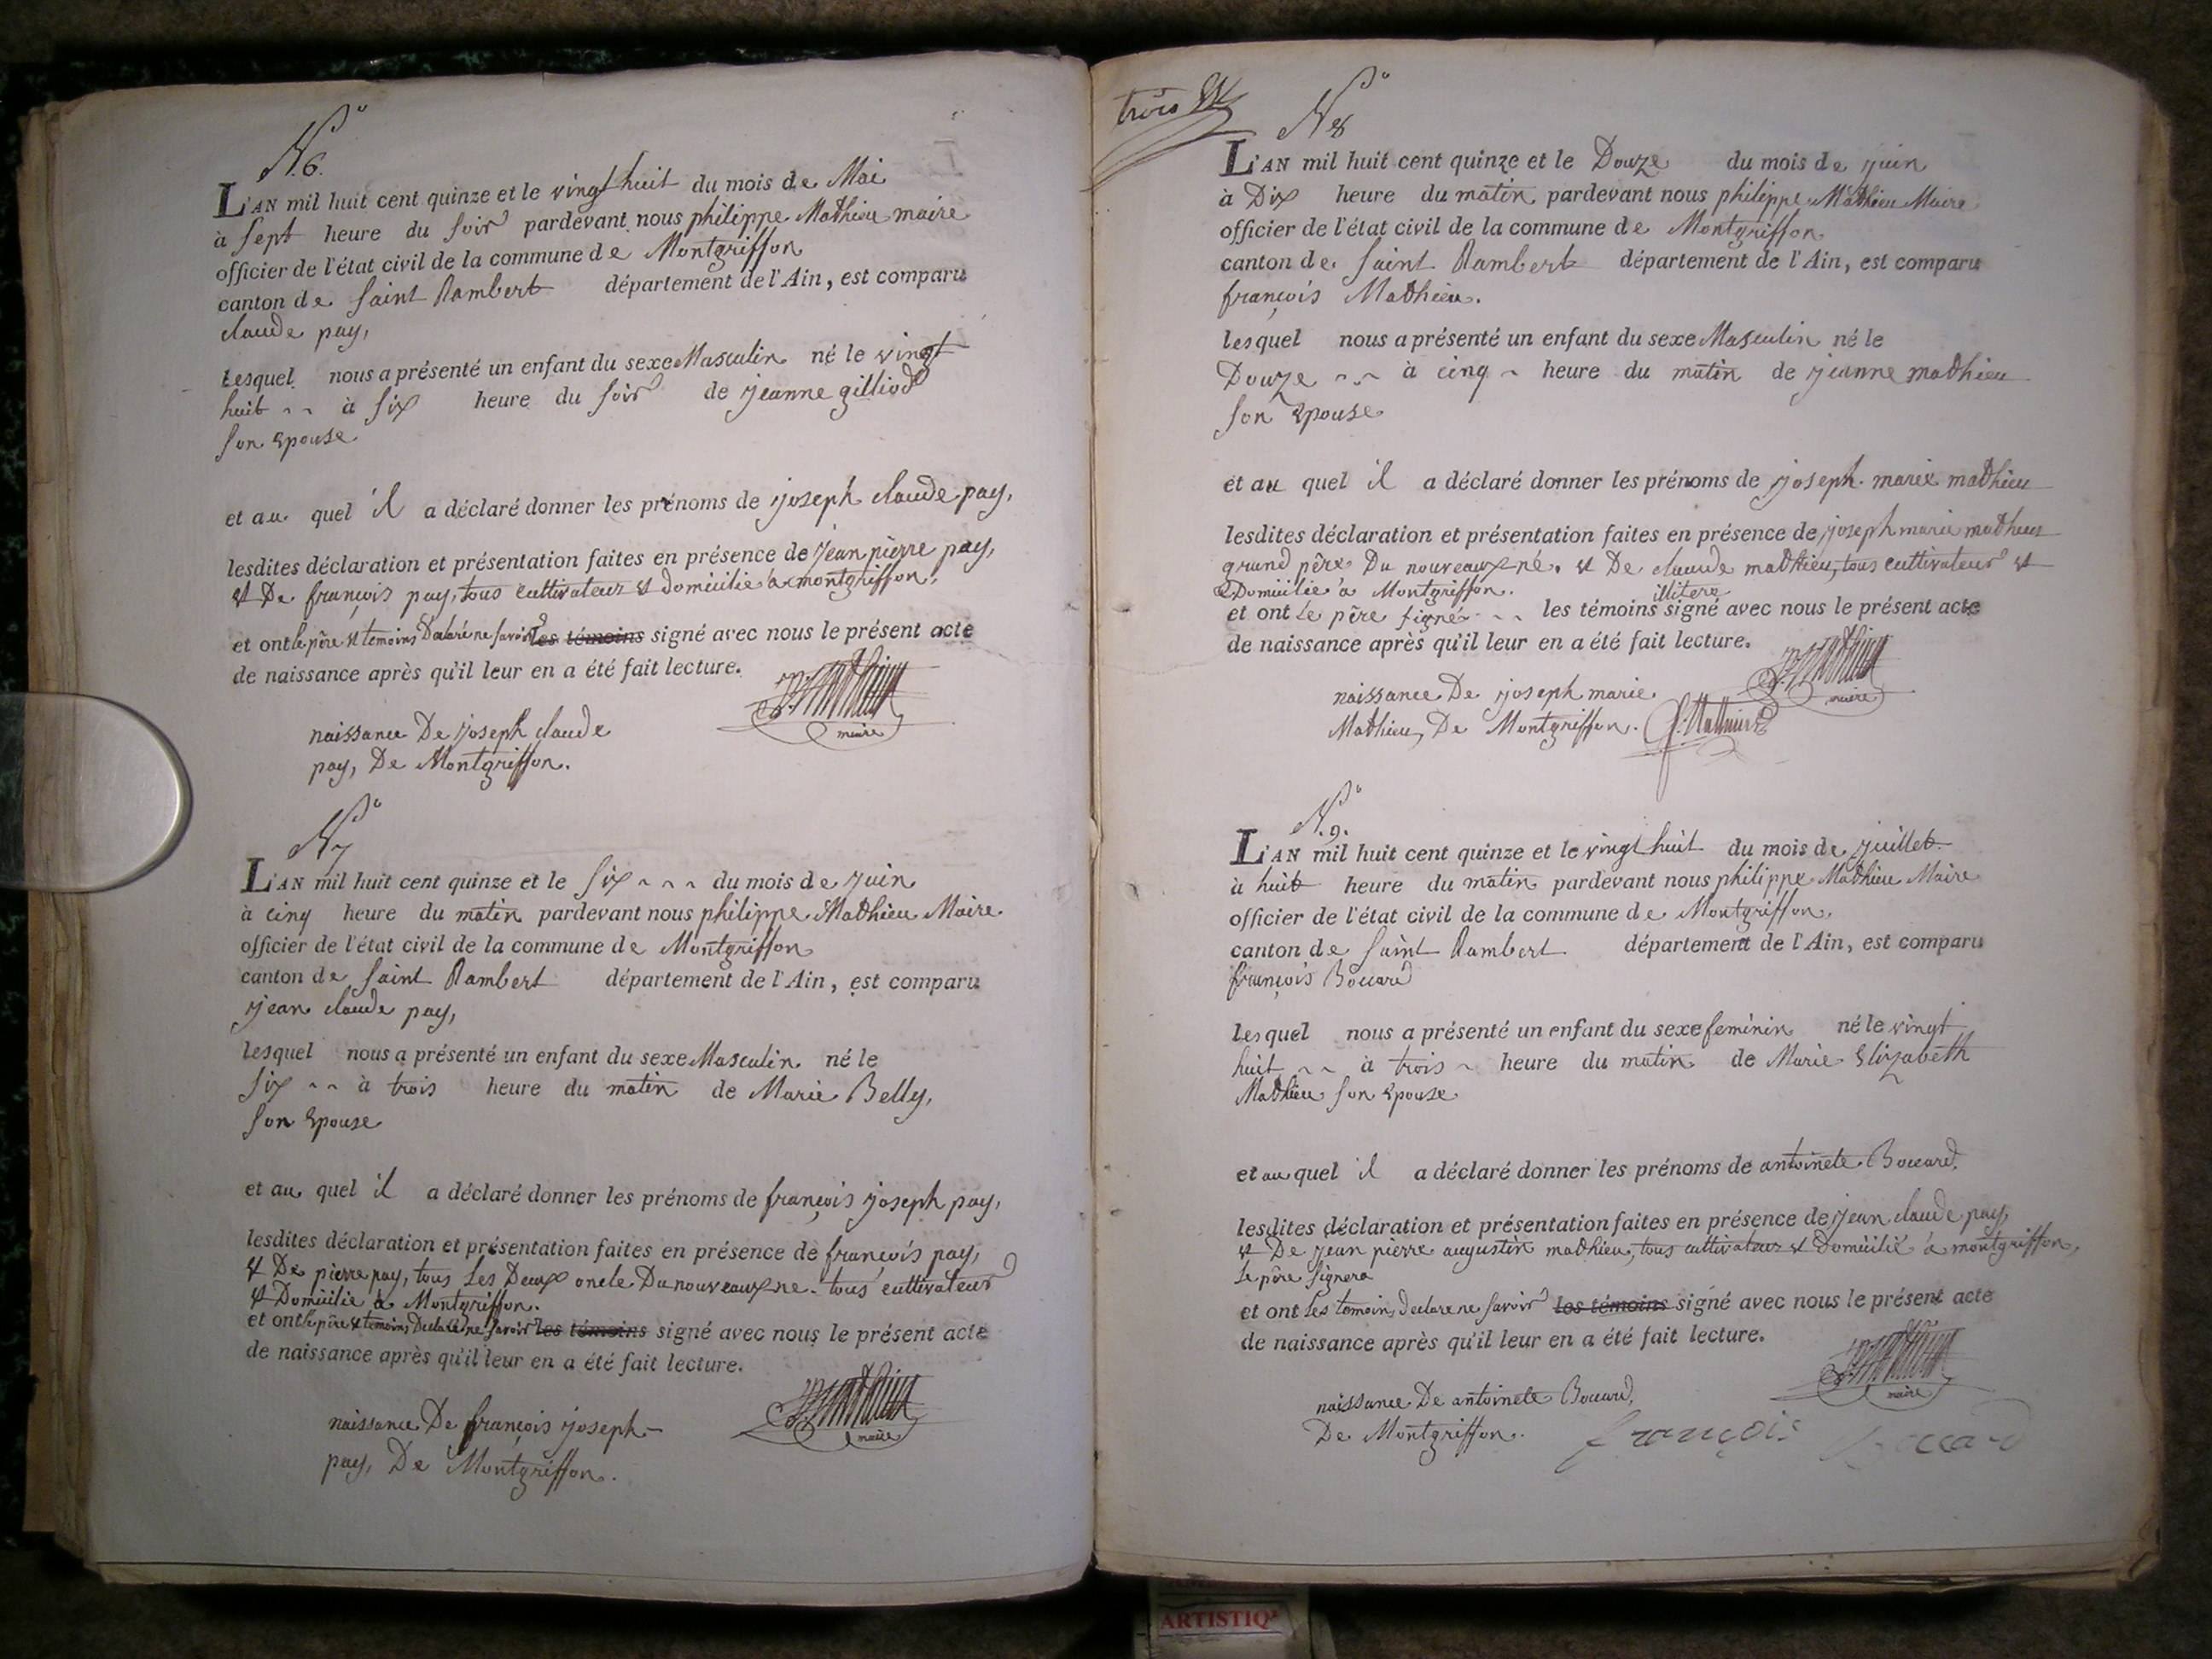 N.º 6.
L'AN mil huit cent quinze et le vingt huit du mois de Mai
à sept heure du soir pardevant nous philippe Mathieu maire
officier de l'état civil de la commune de Montgriffon
canton de saint Rambert département de l'Ain, est comparu
claude pay,
Lesquel nous a présenté un enfant du sexe Masculin né le vingt
huit à six heure du soir de jeanne gilliod
son Epouse
et au quel il a déclaré donner les prénoms de joseph claude pay,
lesdites déclaration et présentation faites en présence de jean pierre pay,
et De françois pay, tous cultivateur et domicilie à montgriffon.
et ont le père et temoins Declaré ne savoir les témoins signé avec nous le présent acte
de naissance après qu'il leur en a été fait lecture.
P. Mathieu
maire
naissance De joseph claude
pay, De Montgriffon.
Nº 7
L'AN mil huit cent quinze et le six du mois de juin
à cinq heure du matin pardevant nous philippe Mathieu Maire
officier de l'état civil de la commune de Montgriffon
canton de saint Rambert département de l'Ain, est comparu
jean claude pay,
lesquel nous a présenté un enfant du sexe Masculin né le
six à trois heure du matin de Marie Belly,
son Epouse
et au quel il a déclaré donner les prénoms de françois joseph pay,
lesdites déclaration et présentation faites en présence de françois pay,
et De pierre pay, tous Les Deux oncle Du nouveaux ne. tous cultivateur
et Domicilie à Montgriffon.
et ont le père et temoins Declaré ne savoir les témoins signé avec nous le présent acte
de naissance après qu'il leur en a été fait lecture.
P. Mathieu
maire
naissance De françois joseph
pay, De Montgriffon.
trois
Nº 8
L'AN mil huit cent quinze et le Douze du mois de juin
à Dix heure du matin pardevant nous philippe Mathieu Maire
officier de l'état civil de la commune de Montgriffon
canton de saint Rambert département de l'Ain, est comparu
françois Mathieu.
lesquel nous a présenté un enfant du sexe Masculin né le
Douze à cinq heure du matin de jeanne mathieu
son Epouse
et au quel il a déclaré donner les prénoms de joseph marie mathieu
lesdites déclaration et présentation faites en présence de joseph marie mathieu
grand père Du nouveaux né. et De claude mathieu, tous cultivateur et
Domicilie à Montgriffon. illitere
et ont Le père signé les témoins signé avec nous le présent acte
de naissance après qu'il leur en a été fait lecture.
P. Mathieu
maire
naissance De joseph marie
Mathieu, De Montgriffon. f. Mathieu
N.º 9.
L'AN mil huit cent quinze et le vingt huit du mois de juillet
à huit heure du matin pardevant nous philippe Mathieu Maire
officier de l'état civil de la commune de Montgriffon.
canton de saint Rambert département de l'Ain, est comparu
françois Boccard
lesquel nous a présenté un enfant du sexe feminin né le vingt
huit à trois heure du matin de Marie Elizabeth
Mathieu son Epouse
et au quel il a déclaré donner les prénoms de antoinete Boccard.
lesdites déclaration et présentation faites en présence de jean claude pay,
et De jean pierre augustin mathieu, tous cultivateur et Domicilié à montgriffon,
Le père signera
et ont Les temoins declare ne savoir les témoins signé avec nous le présent acte
de naissance après qu'il leur en a été fait lecture.
P. Mathieu
maire
naissance De antoinete Boccard,
De Montgriffon. françois Boccard
ARTISTIQ